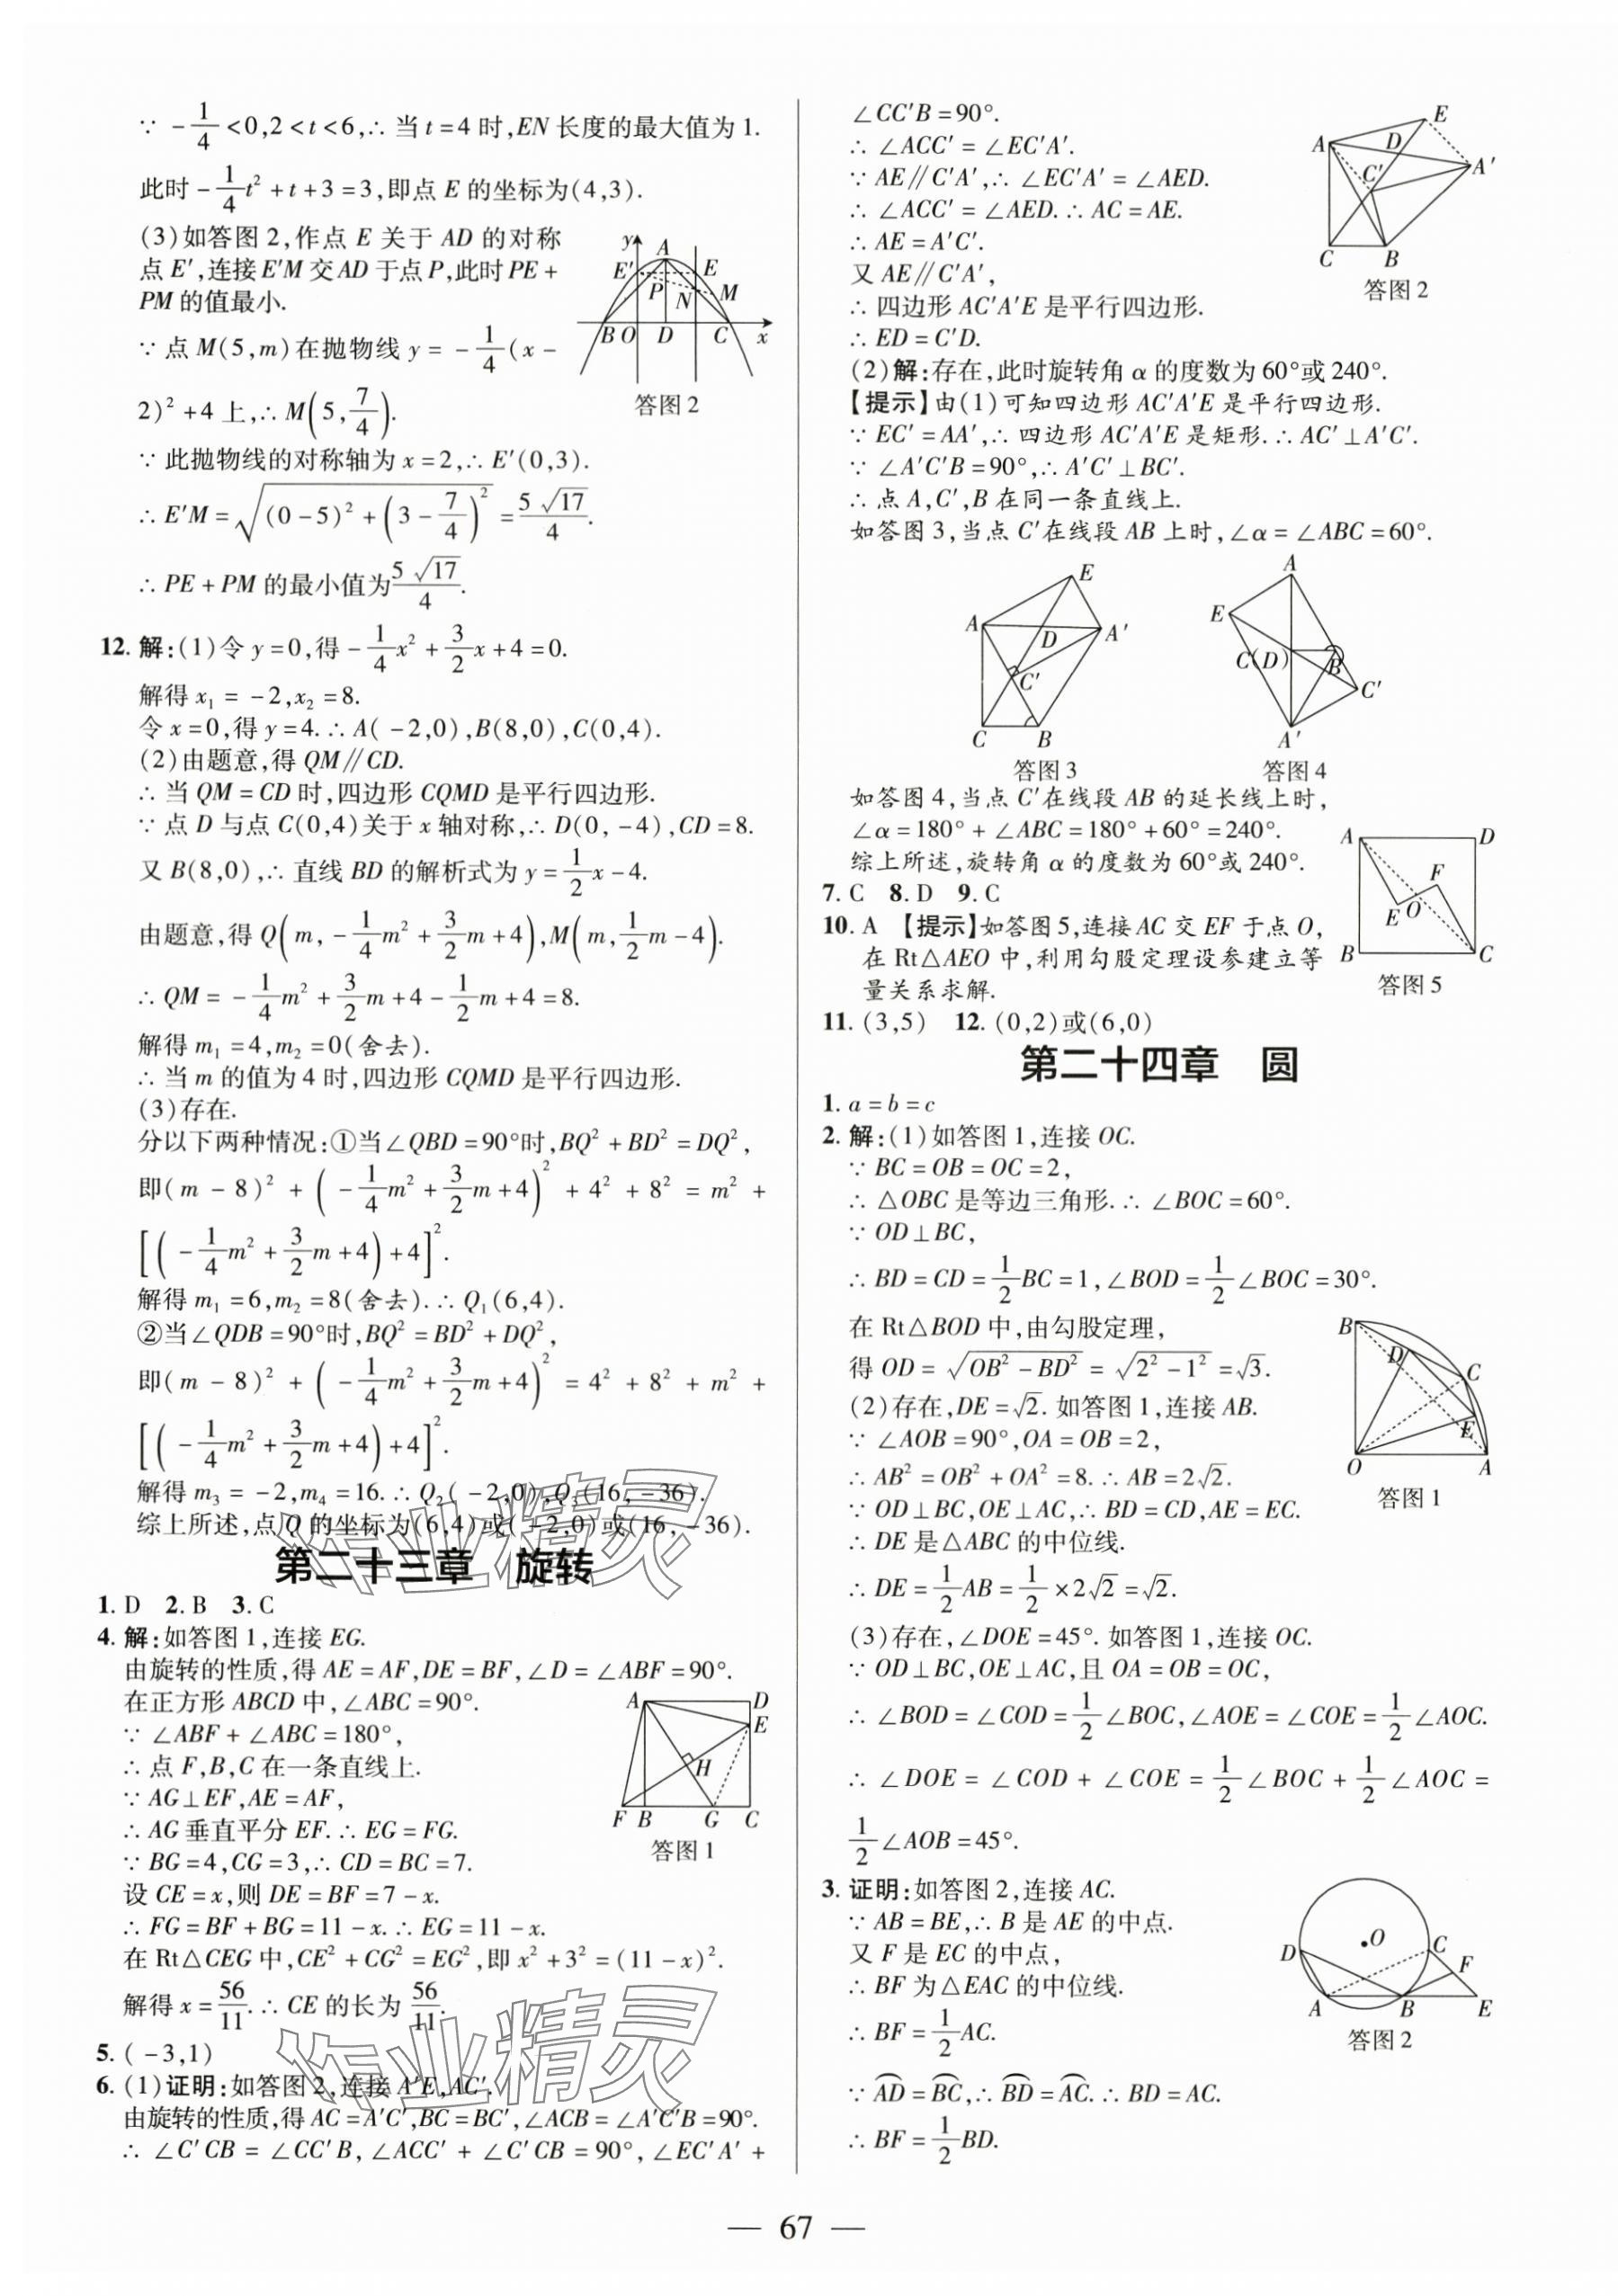 ∵ -1/4<0,2<t<6,∴ 当 t=4 时,EN 长度的最大值为 1.
此时 -1/4t²+t+3=3,即点 E 的坐标为(4,3).
(3)如答图 2,作点 E 关于 AD 的对称
点 E′,连接 E′M 交 AD 于点 P,此时 PE+
PM 的值最小.
∵ 点 M(5,m)在抛物线 y = -1/4(x-
2)²+4 上,∴ M(5,7/4).
y A E′ E P N M B O D C x
答图 2
∵ 此抛物线的对称轴为 x=2,∴ E′(0,3).
∴ E′M=√((0-5)²+(3-7/4)²)=5√17/4.
∴ PE+PM 的最小值为5√17/4.
12. 解:(1)令 y=0,得 -1/4x²+3/2x+4=0.
解得 x₁=-2,x₂=8.
令 x=0,得 y=4.∴ A(-2,0),B(8,0),C(0,4).
(2)由题意,得 QM∥CD.
∴ 当 QM=CD 时,四边形 CQMD 是平行四边形.
∵ 点 D 与点 C(0,4)关于 x 轴对称,∴ D(0,-4),CD=8.
又 B(8,0),∴ 直线 BD 的解析式为 y=1/2x-4.
由题意,得 Q(m,-1/4m²+3/2m+4),M(m,1/2m-4).
∴ QM=-1/4m²+3/2m+4-1/2m+4=8.
解得 m₁=4,m₂=0(舍去).
∴ 当 m 的值为 4 时,四边形 CQMD 是平行四边形.
(3)存在.
分以下两种情况:①当∠QBD=90°时,BQ²+BD²=DQ²,
即(m-8)²+(-1/4m²+3/2m+4)²+4²+8²=m²+
[(-1/4m²+3/2m+4)+4]².
解得 m₁=6,m₂=8(舍去).∴ Q₁(6,4).
②当∠QDB=90°时,BQ²=BD²+DQ²,
即(m-8)²+(-1/4m²+3/2m+4)²=4²+8²+m²+
[(-1/4m²+3/2m+4)+4]².
解得 m₃=-2,m₄=16.∴ Q₂(-2,0),Q₃(16,-36).
综上所述,点 Q 的坐标为(6,4)或(-2,0)或(16,-36).
作业精灵
第二十三章 旋转
1. D 2. B 3. C
4. 解:如答图 1,连接 EG.
由旋转的性质,得 AE=AF,DE=BF,∠D=∠ABF=90°.
在正方形 ABCD 中,∠ABC=90°.
∵ ∠ABF+∠ABC=180°,
∴ 点 F,B,C 在一条直线上.
∵ AG⊥EF,AE=AF,
∴ AG 垂直平分 EF.∴ EG=FG.
∵ BG=4,CG=3,∴ CD=BC=7.
A D E H F B G C
答图 1
设 CE=x,则 DE=BF=7-x.
∴ FG=BF+BG=11-x.∴ EG=11-x.
在 Rt△CEG 中,CE²+CG²=EG²,即 x²+3²=(11-x)².
解得 x=56/11.∴ CE 的长为 56/11.
作业精灵
5. (-3,1)
6. (1)证明:如答图 2,连接 A′E,AC′.
由旋转的性质,得 AC=A′C′,BC=BC′,∠ACB=∠A′C′B=90°.
∴ ∠C′CB=∠CC′B,∠ACC′+∠C′CB=90°,∠EC′A′+
∠CC′B=90°.
∴ ∠ACC′=∠EC′A′.
∵ AE∥C′A′,∴ ∠EC′A′=∠AED.
∴ ∠ACC′=∠AED.∴ AC=AE.
∴ AE=A′C′.
又 AE∥C′A′,
∴ 四边形 AC′A′E 是平行四边形.
∴ ED=C′D.
E A D A′ C′ C B
答图 2
(2)解:存在,此时旋转角 α 的度数为 60°或 240°.
【提示】由(1)可知四边形 AC′A′E 是平行四边形.
∵ EC′=AA′,∴ 四边形 AC′A′E 是矩形.∴ AC′⊥A′C′.
∵ ∠A′C′B=90°,∴ A′C′⊥BC′.
∴ 点 A,C′,B 在同一条直线上.
如答图 3,当点 C′在线段 AB 上时,∠α=∠ABC=60°.
E A D A′ C′ C B
答图 3
A E C(D) B C′ A′
答图 4
如答图 4,当点 C′在线段 AB 的延长线上时,
∠α=180°+∠ABC=180°+60°=240°.
综上所述,旋转角 α 的度数为 60°或 240°.
7. C 8. D 9. C
10. A 【提示】如答图 5,连接 AC 交 EF 于点 O,
在 Rt△AEO 中,利用勾股定理设参建立等
量关系求解.
A D F E O B C
答图 5
11. (3,5) 12. (0,2)或(6,0)
第二十四章 圆
1. a=b=c
2. 解:(1)如答图 1,连接 OC.
∵ BC=OB=OC=2,
∴ △OBC 是等边三角形.∴ ∠BOC=60°.
∵ OD⊥BC,
∴ BD=CD=1/2BC=1,∠BOD=1/2∠BOC=30°.
在 Rt△BOD 中,由勾股定理,
得 OD=√(OB²-BD²)=√(2²-1²)=√3.
(2)存在,DE=√2. 如答图 1,连接 AB.
∵ ∠AOB=90°,OA=OB=2,
∴ AB²=OB²+OA²=8.∴ AB=2√2.
∵ OD⊥BC,OE⊥AC,∴ BD=CD,AE=EC.
B D C E O A
答图 1
∴ DE 是△ABC 的中位线.
∴ DE=1/2AB=1/2×2√2=√2.
(3)存在,∠DOE=45°. 如答图 1,连接 OC.
∵ OD⊥BC,OE⊥AC,且 OA=OB=OC,
∴ ∠BOD=∠COD=1/2∠BOC,∠AOE=∠COE=1/2∠AOC.
∴ ∠DOE=∠COD+∠COE=1/2∠BOC+1/2∠AOC=
1/2∠AOB=45°.
3. 证明:如答图 2,连接 AC.
∵ AB=BE,∴ B 是 AE 的中点.
又 F 是 EC 的中点,
∴ BF 为△EAC 的中位线.
∴ BF=1/2AC.
O D C F A B E
答图 2
∵ A͡D=B͡C,∴ B͡D=A͡C.∴ BD=AC.
∴ BF=1/2BD.
— 67 —